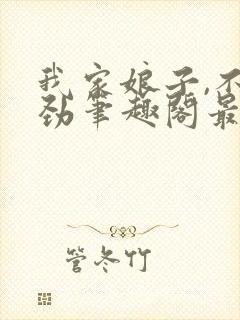 我家娘子,不
劲笔趣阁最
管冬竹